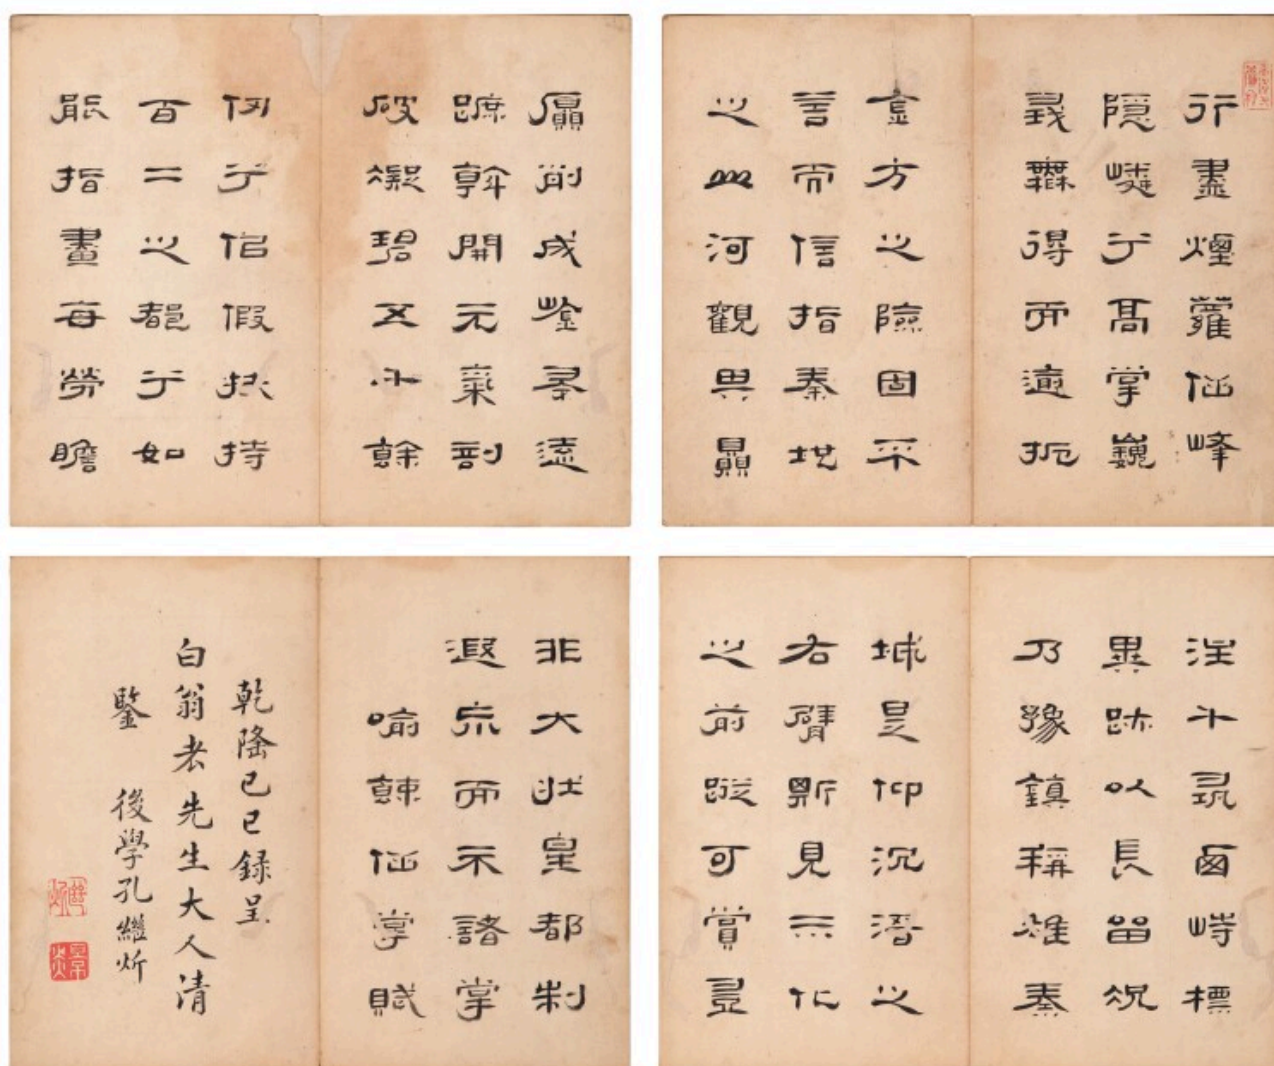 行盡煙蘿仙峰
隱嶙乎高掌巍
峩無得而扼
金方之險固平
言而信指秦地
之山河觀異贔
屭削成尋遠
蹠幹開元氣剖
破凝碧五千餘
仞乎侶假扶持
百二之都乎如
能指畫每勞瞻
注斗峙標
異跡以長留況
乃豫鎮稱雄秦
城是仰沉潛之
右臂斯見示化
之前蹤可賞豈
非大壯皇都制
遐而示諸掌
喻餗仙掌賦
乾隆己巳録呈
白翁老先生大人清
鑒
後學孔繼炘